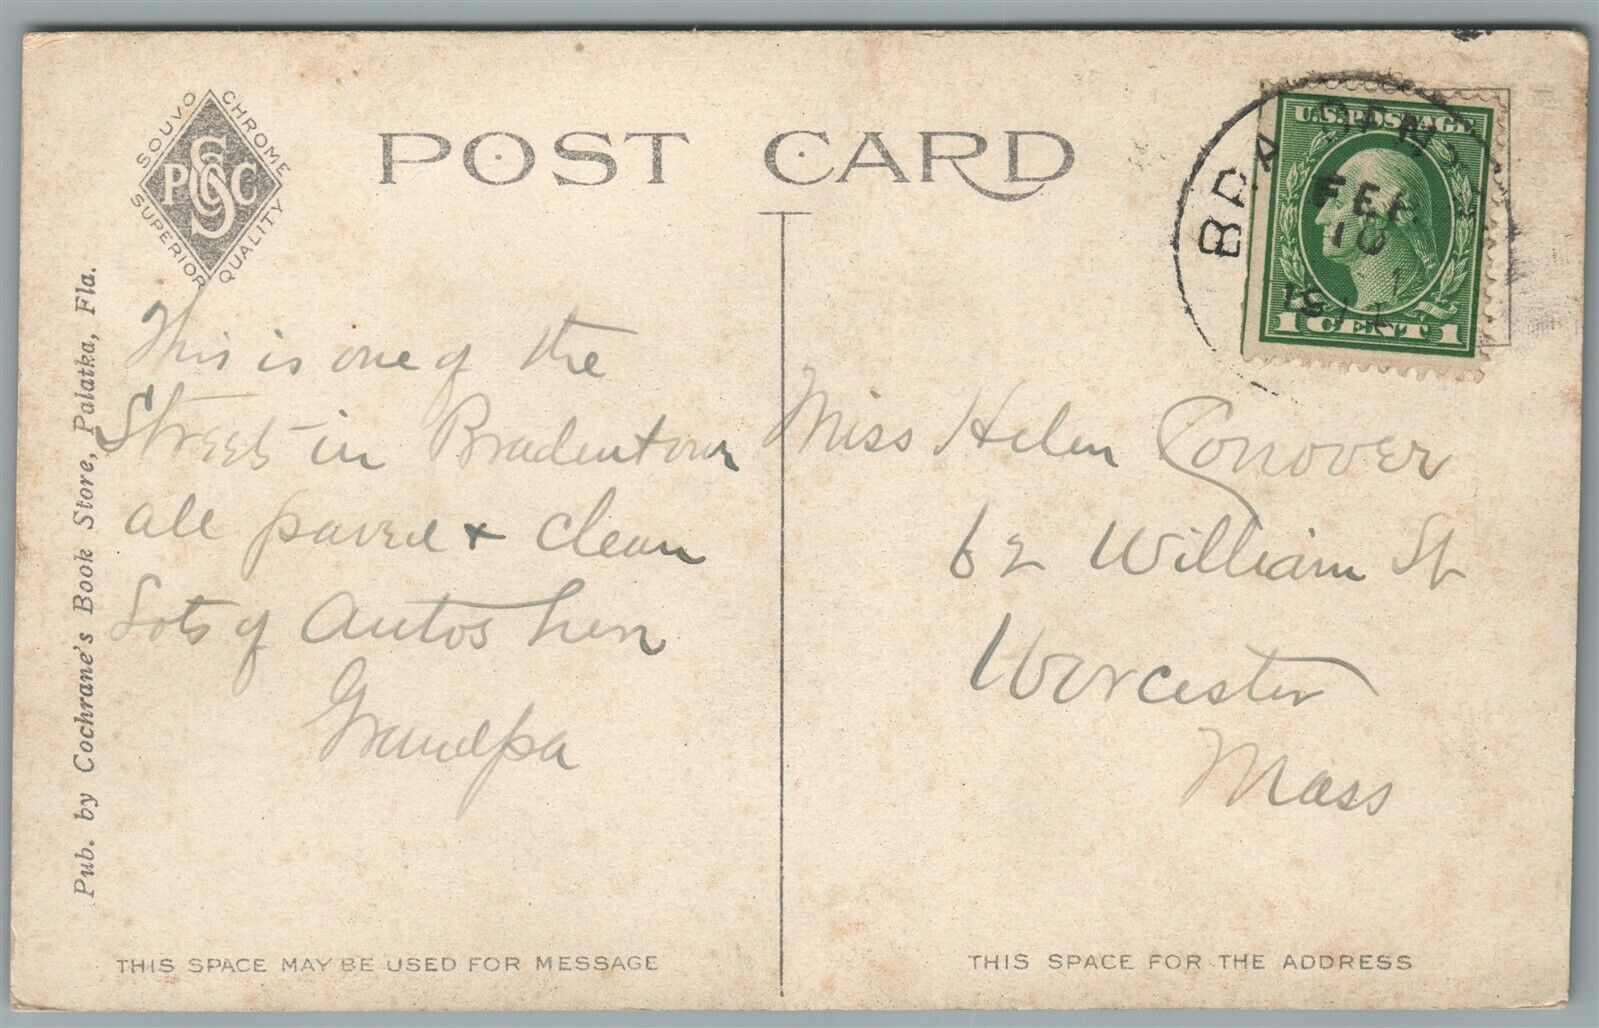 SOUVO CHROME
PSCC
SUPERIOR QUALITY
POST CARD
Pub. by Cochrane's Book Store, Palatka, Fla.
U.S. POSTAGE
FEB
10
1911
1 CENT 1
This is one of the
Streets in Bradentown
all paved + clean
Lots of Autos here
Grandpa
Miss Helen Conover
62 William St
Worcester
Mass
THIS SPACE MAY BE USED FOR MESSAGE
THIS SPACE FOR THE ADDRESS